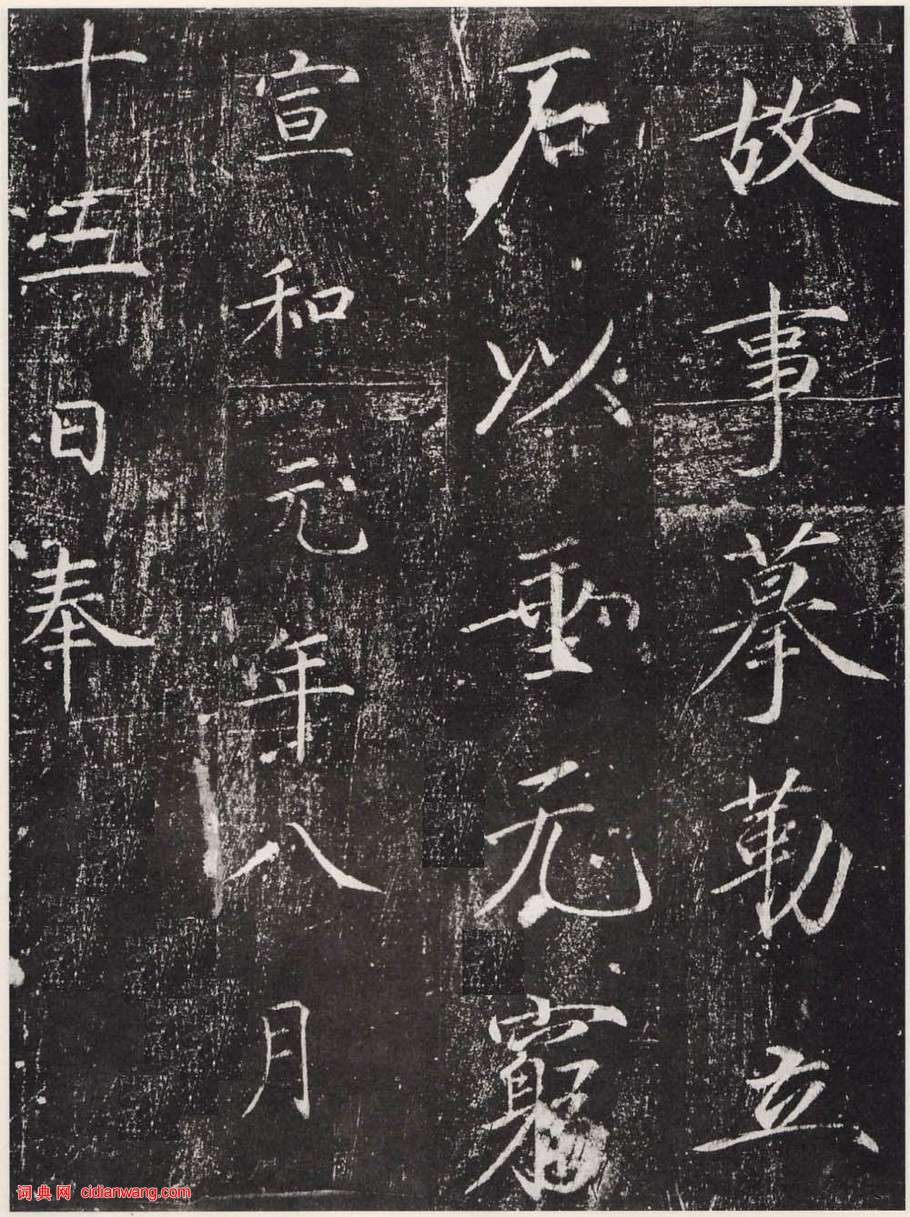 故事摹勒立
石以垂无窮
宣和元年八月
十五日奉
词典网 cidianwang.com